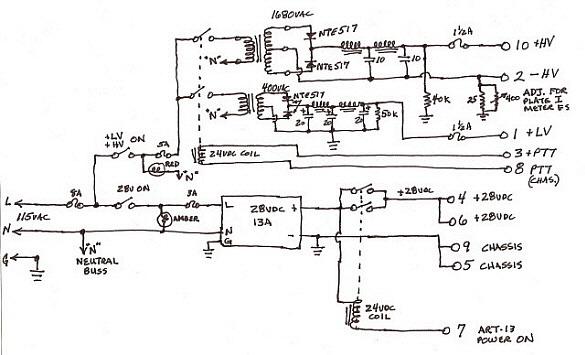 1680VAC
NTE517
NTE517
"N"
10
10
1½A
10 +HV
2 -HV
40K
25
400
ADJ. FOR
PLATE I
METER FS
400VAC
NTE517
"N"
20
20
2
50K
1½A
1 +LV
+LV
+HV
ON
5A
RED
"N"
24VDC COIL
3 +PTT
8 PTT
(CHAS.)
L
8A
28V ON
3A
115VAC
AMBER
N
"N"
NEUTRAL
BUSS
G
L
N
G
28VDC
13A
+
-
+28VDC
4 +28VDC
6 +28VDC
9 CHASSIS
5 CHASSIS
24VDC
COIL
7 ART-13
POWER ON